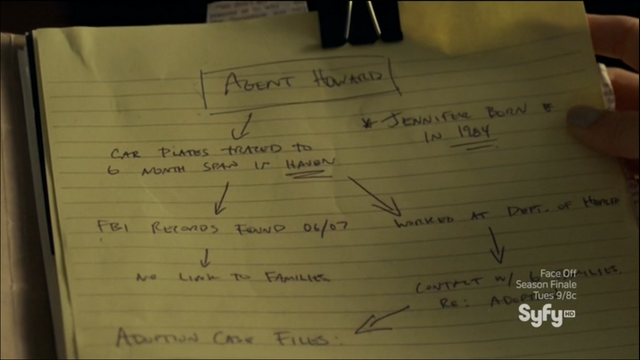 AGENT HOWARD
* JENNIFER BORN *
IN 1984
CAR PLATES TRACED TO
6 MONTH SPAN IN HAVEN
FBI RECORDS FOUND 06/07
WORKED AT DEPT. OF
NO LINK TO FAMILIES
CONTACT W/ FAMILIES
RE:
ADOPTION CASE FILES:
Face Off
Season Finale
Tues 9/8c
Syfy HD